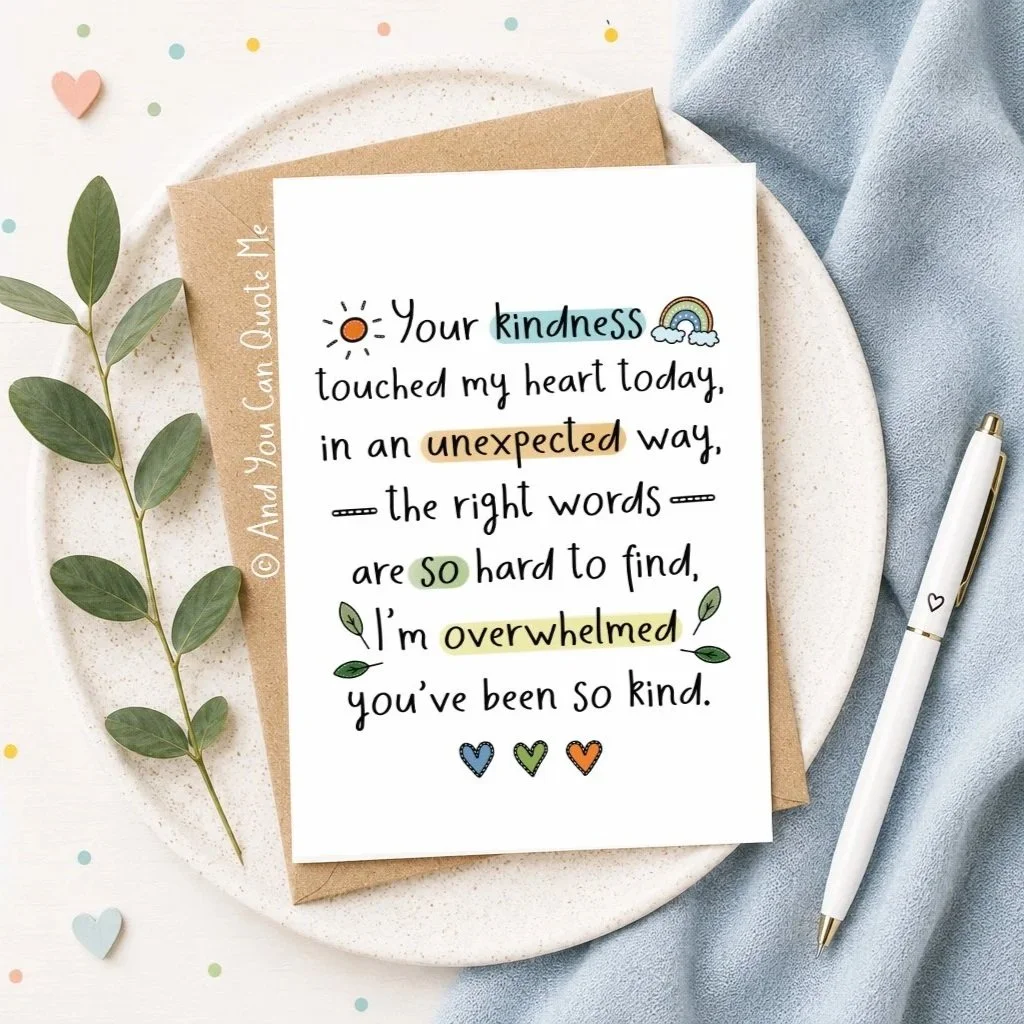 Your kindness
touched my heart today,
in an unexpected way,
the right words
are so hard to find,
I'm overwhelmed
you've been so kind.
© And You Can Quote Me